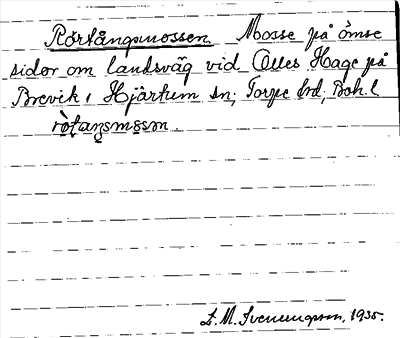 Rörtångsmossen Mosse på ömse
sidor om landsväg vid Olles Hage på
Brevik, Hjärtum sn; Torpe hrd, Boh. l
rò̀taŋsmɔsən.
L. M. Svenungsson, 1935.